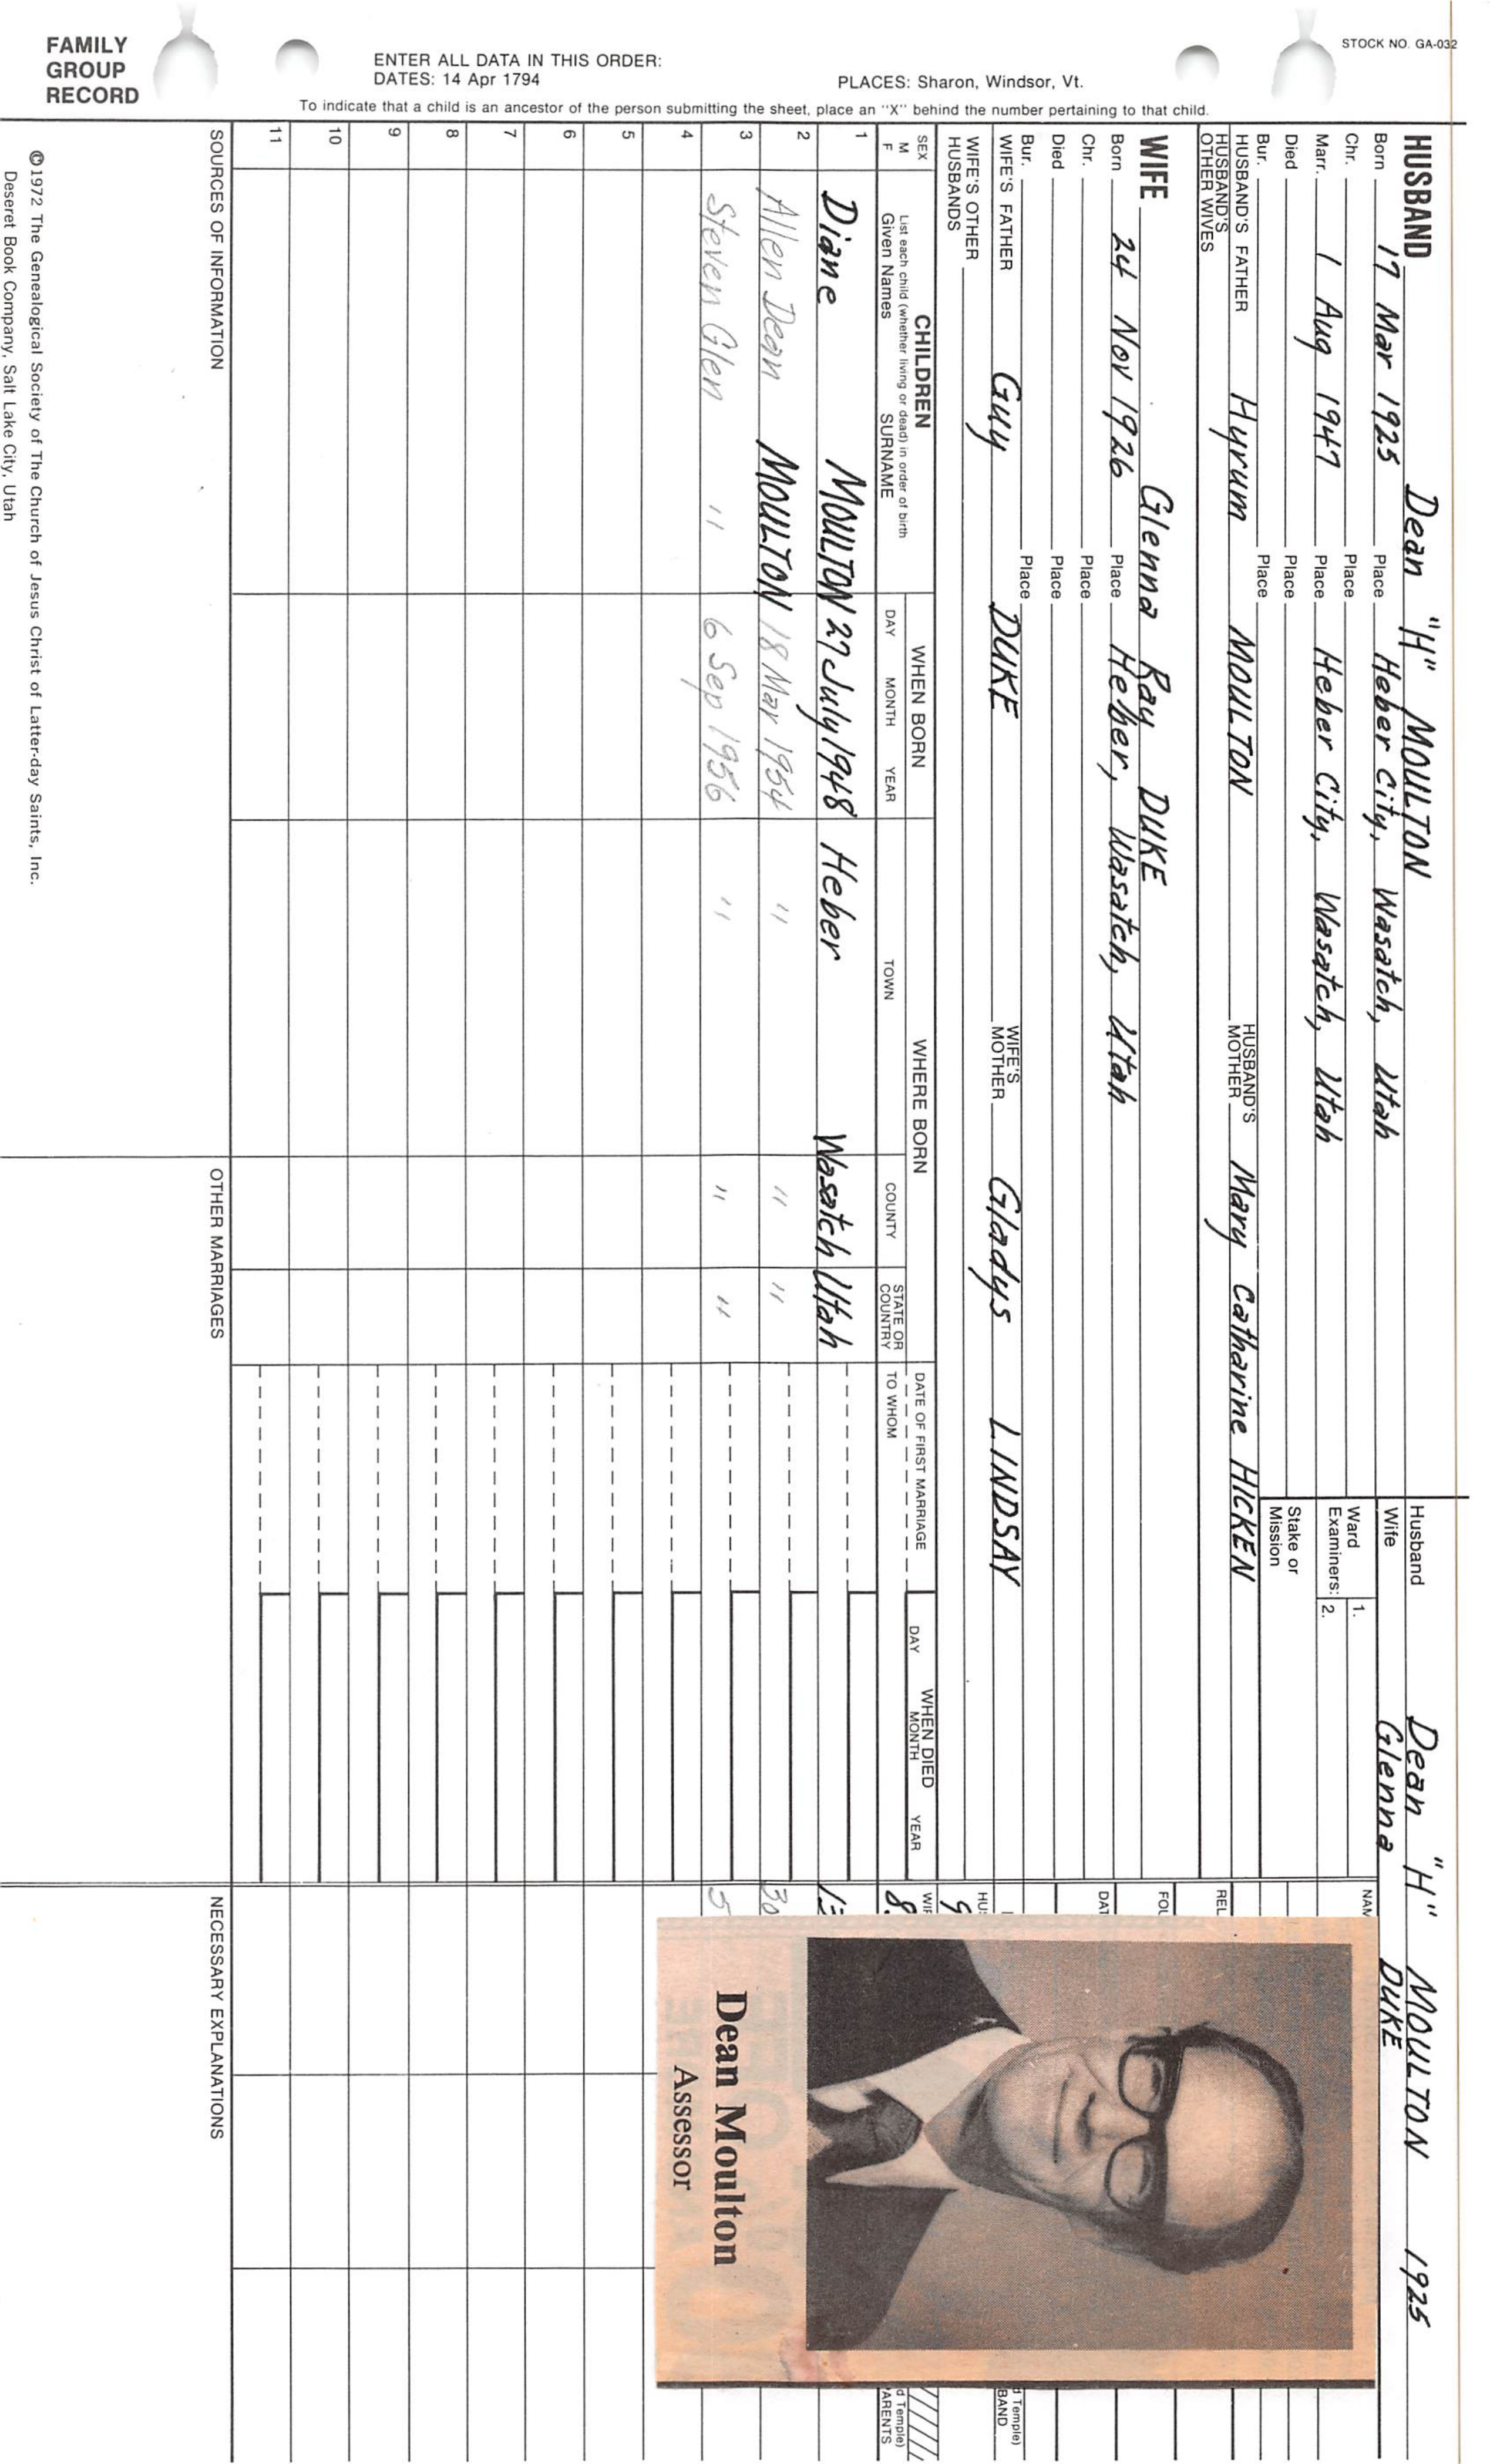 FAMILY
GROUP
RECORD
ENTER ALL DATA IN THIS ORDER:
DATES: 14 Apr 1794
PLACES: Sharon, Windsor, Vt.
To indicate that a child is an ancestor of the person submitting the sheet, place an "X" behind the number pertaining to that child.
STOCK NO. GA-032
HUSBAND Dean "H" MOULTON
Born 17 Mar 1925 Place Heber City, Wasatch, Utah
Chr. Place
Marr. 1 Aug 1947 Place Heber City, Wasatch, Utah
Died Place
Bur. Place
HUSBAND'S FATHER Hyrum MOULTON HUSBAND'S MOTHER Mary Catharine HICKEN
HUSBAND'S OTHER WIVES
WIFE Glenna Ray DUKE
Born 24 Nov 1926 Place Heber, Wasatch, Utah
Chr. Place
Died Place
Bur. Place
WIFE'S FATHER Guy DUKE WIFE'S MOTHER Gladys LINDSAY
WIFE'S OTHER HUSBANDS
Husband Dean "H" MOULTON 1925
Wife Glenna DUKE
Ward 1.
Examiners: 2.
Stake or Mission
SEX
M
F
CHILDREN
List each child (whether living or dead) in order of birth
Given Names SURNAME
WHEN BORN
DAY MONTH YEAR
WHERE BORN
TOWN COUNTY STATE OR COUNTRY
DATE OF FIRST MARRIAGE
TO WHOM
WHEN DIED
DAY MONTH YEAR
1 Diane MOULTON 27 July 1948 Heber Wasatch Utah
2 Allen Dean MOULTON 18 Mar 1954 " " "
3 Steven Glen " 6 Sep 1956 " " "
4
5
6
7
8
9
10
11
SOURCES OF INFORMATION
OTHER MARRIAGES
NECESSARY EXPLANATIONS
©1972 The Genealogical Society of The Church of Jesus Christ of Latter-day Saints, Inc.
Deseret Book Company, Salt Lake City, Utah
Dean Moulton
Assessor